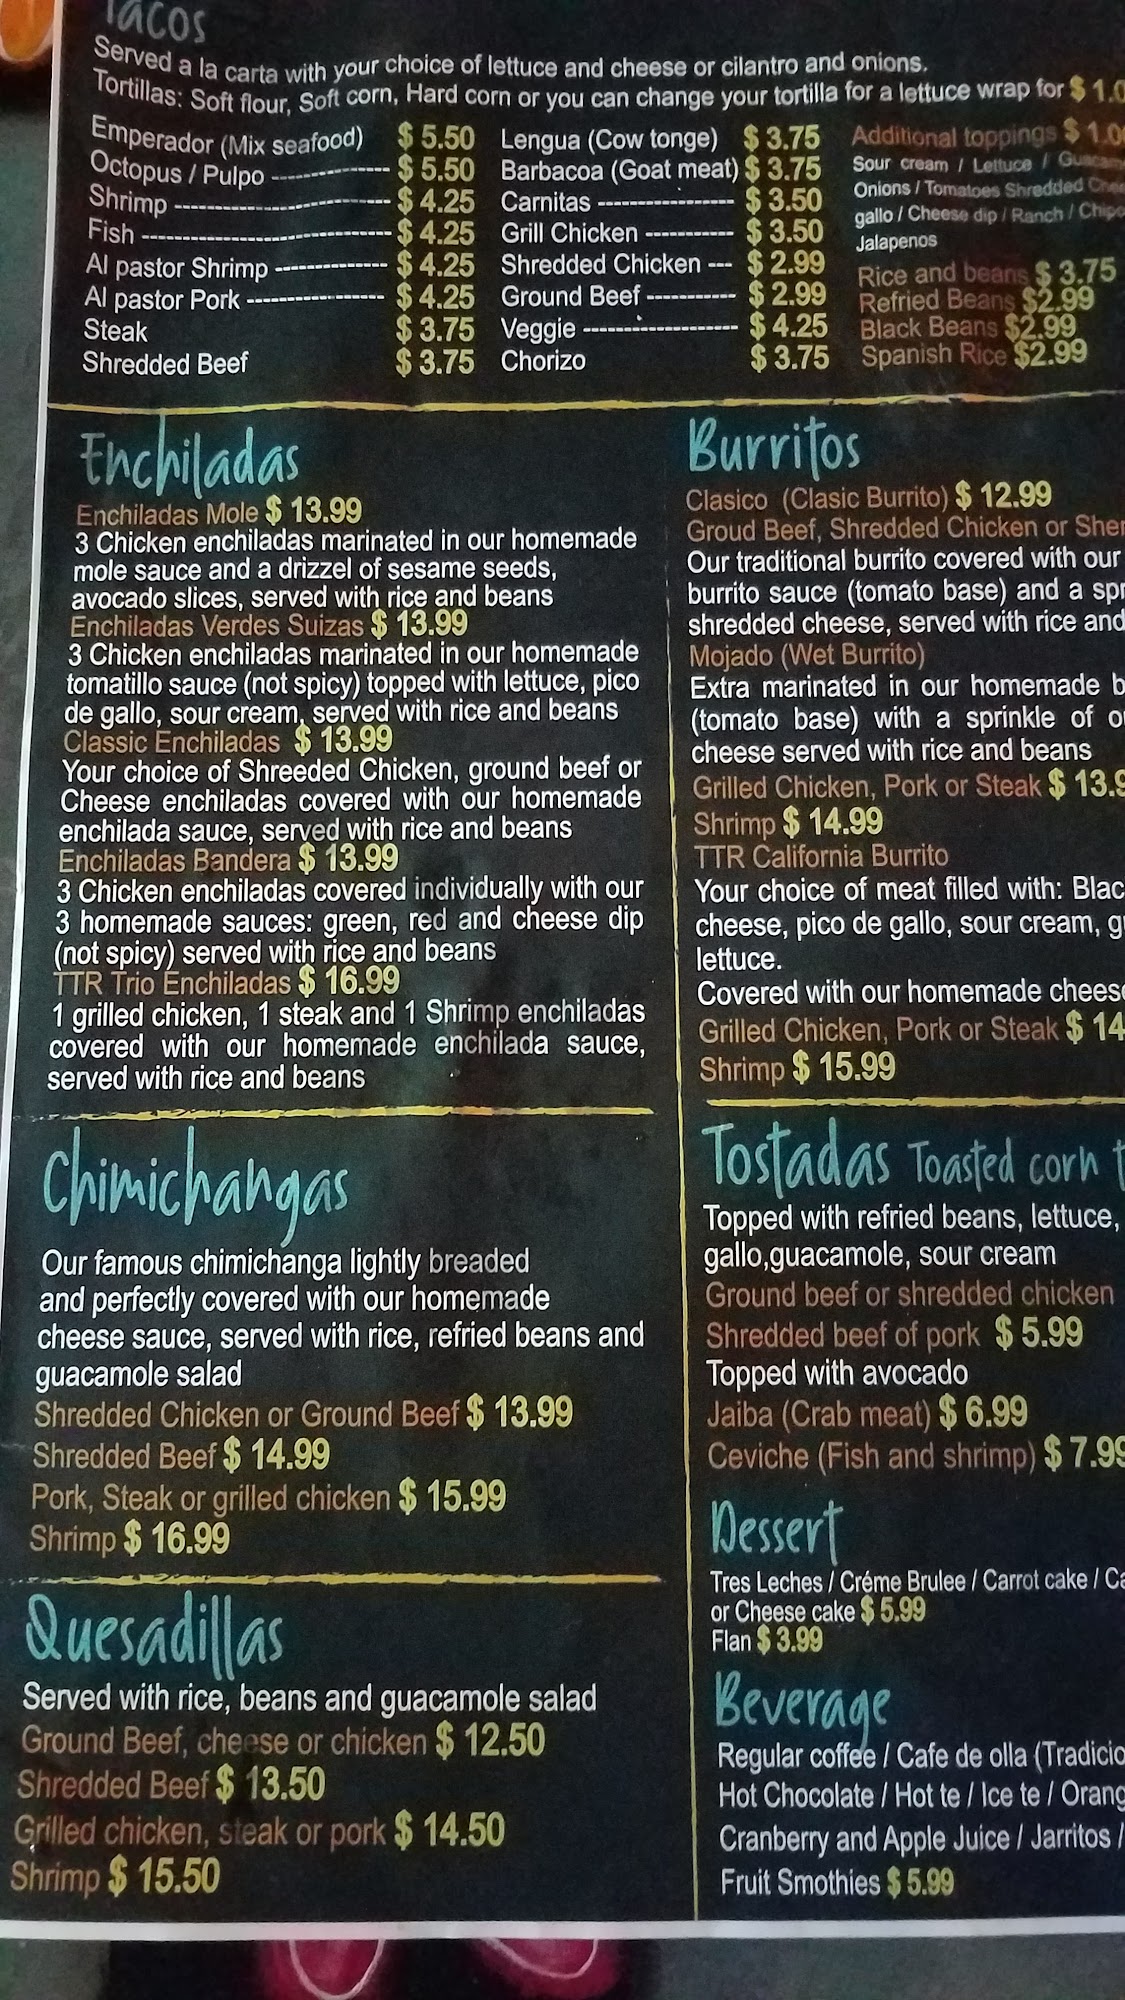 Tacos
Served a la carta with your choice of lettuce and cheese or cilantro and onions.
Tortillas: Soft flour, Soft corn, Hard corn or you can change your tortilla for a lettuce wrap for $ 1.0
Emperador (Mix seafood) $ 5.50
Octopus / Pulpo ---------------- $ 5.50
Shrimp ----------------------------- $ 4.25
Fish --------------------------------- $ 4.25
Al pastor Shrimp --------------- $ 4.25
Al pastor Pork ------------------ $ 4.25
Steak $ 3.75
Shredded Beef $ 3.75
Lengua (Cow tonge) $ 3.75
Barbacoa (Goat meat) $ 3.75
Carnitas ----------------- $ 3.50
Grill Chicken ----------- $ 3.50
Shredded Chicken --- $ 2.99
Ground Beef ----------- $ 2.99
Veggie ------------------- $ 4.25
Chorizo $ 3.75
Additional toppings $ 1.00
Sour cream / Lettuce /
Onions / Tomatoes Shredded
gallo / Cheese dip / Ranch /
Jalapenos
Rice and beans $ 3.75
Refried Beans $2.99
Black Beans $2.99
Spanish Rice $2.99
Enchiladas
Enchiladas Mole $ 13.99
3 Chicken enchiladas marinated in our homemade
mole sauce and a drizzel of sesame seeds,
avocado slices, served with rice and beans
Enchiladas Verdes Suizas $ 13.99
3 Chicken enchiladas marinated in our homemade
tomatillo sauce (not spicy) topped with lettuce, pico
de gallo, sour cream, served with rice and beans
Classic Enchiladas $ 13.99
Your choice of Shreeded Chicken, ground beef or
Cheese enchiladas covered with our homemade
enchilada sauce, served with rice and beans
Enchiladas Bandera $ 13.99
3 Chicken enchiladas covered individually with our
3 homemade sauces: green, red and cheese dip
(not spicy) served with rice and beans
TTR Trio Enchiladas $ 16.99
1 grilled chicken, 1 steak and 1 Shrimp enchiladas
covered with our homemade enchilada sauce,
served with rice and beans
Chimichangas
Our famous chimichanga lightly breaded
and perfectly covered with our homemade
cheese sauce, served with rice, refried beans and
guacamole salad
Shredded Chicken or Ground Beef $ 13.99
Shredded Beef $ 14.99
Pork, Steak or grilled chicken $ 15.99
Shrimp $ 16.99
Quesadillas
Served with rice, beans and guacamole salad
Ground Beef, cheese or chicken $ 12.50
Shredded Beef $ 13.50
Grilled chicken, steak or pork $ 14.50
Shrimp $ 15.50
Burritos
Clasico (Clasic Burrito) $ 12.99
Groud Beef, Shredded Chicken or
Our traditional burrito covered with our
burrito sauce (tomato base) and a
shredded cheese, served with rice and
Mojado (Wet Burrito)
Extra marinated in our homemade
(tomato base) with a sprinkle of
cheese served with rice and beans
Grilled Chicken, Pork or Steak $ 13.9
Shrimp $ 14.99
TTR California Burrito
Your choice of meat filled with:
cheese, pico de gallo, sour cream,
lettuce.
Covered with our homemade
Grilled Chicken, Pork or Steak $ 14
Shrimp $ 15.99
Tostadas Toasted corn
Topped with refried beans, lettuce,
gallo,guacamole, sour cream
Ground beef or shredded chicken
Shredded beef of pork $ 5.99
Topped with avocado
Jaiba (Crab meat) $ 6.99
Ceviche (Fish and shrimp) $ 7.99
Dessert
Tres Leches / Créme Brulee / Carrot cake /
or Cheese cake $ 5.99
Flan $ 3.99
Beverage
Regular coffee / Cafe de olla
Hot Chocolate / Hot te / Ice te /
Cranberry and Apple Juice / Jarritos /
Fruit Smothies $ 5.99